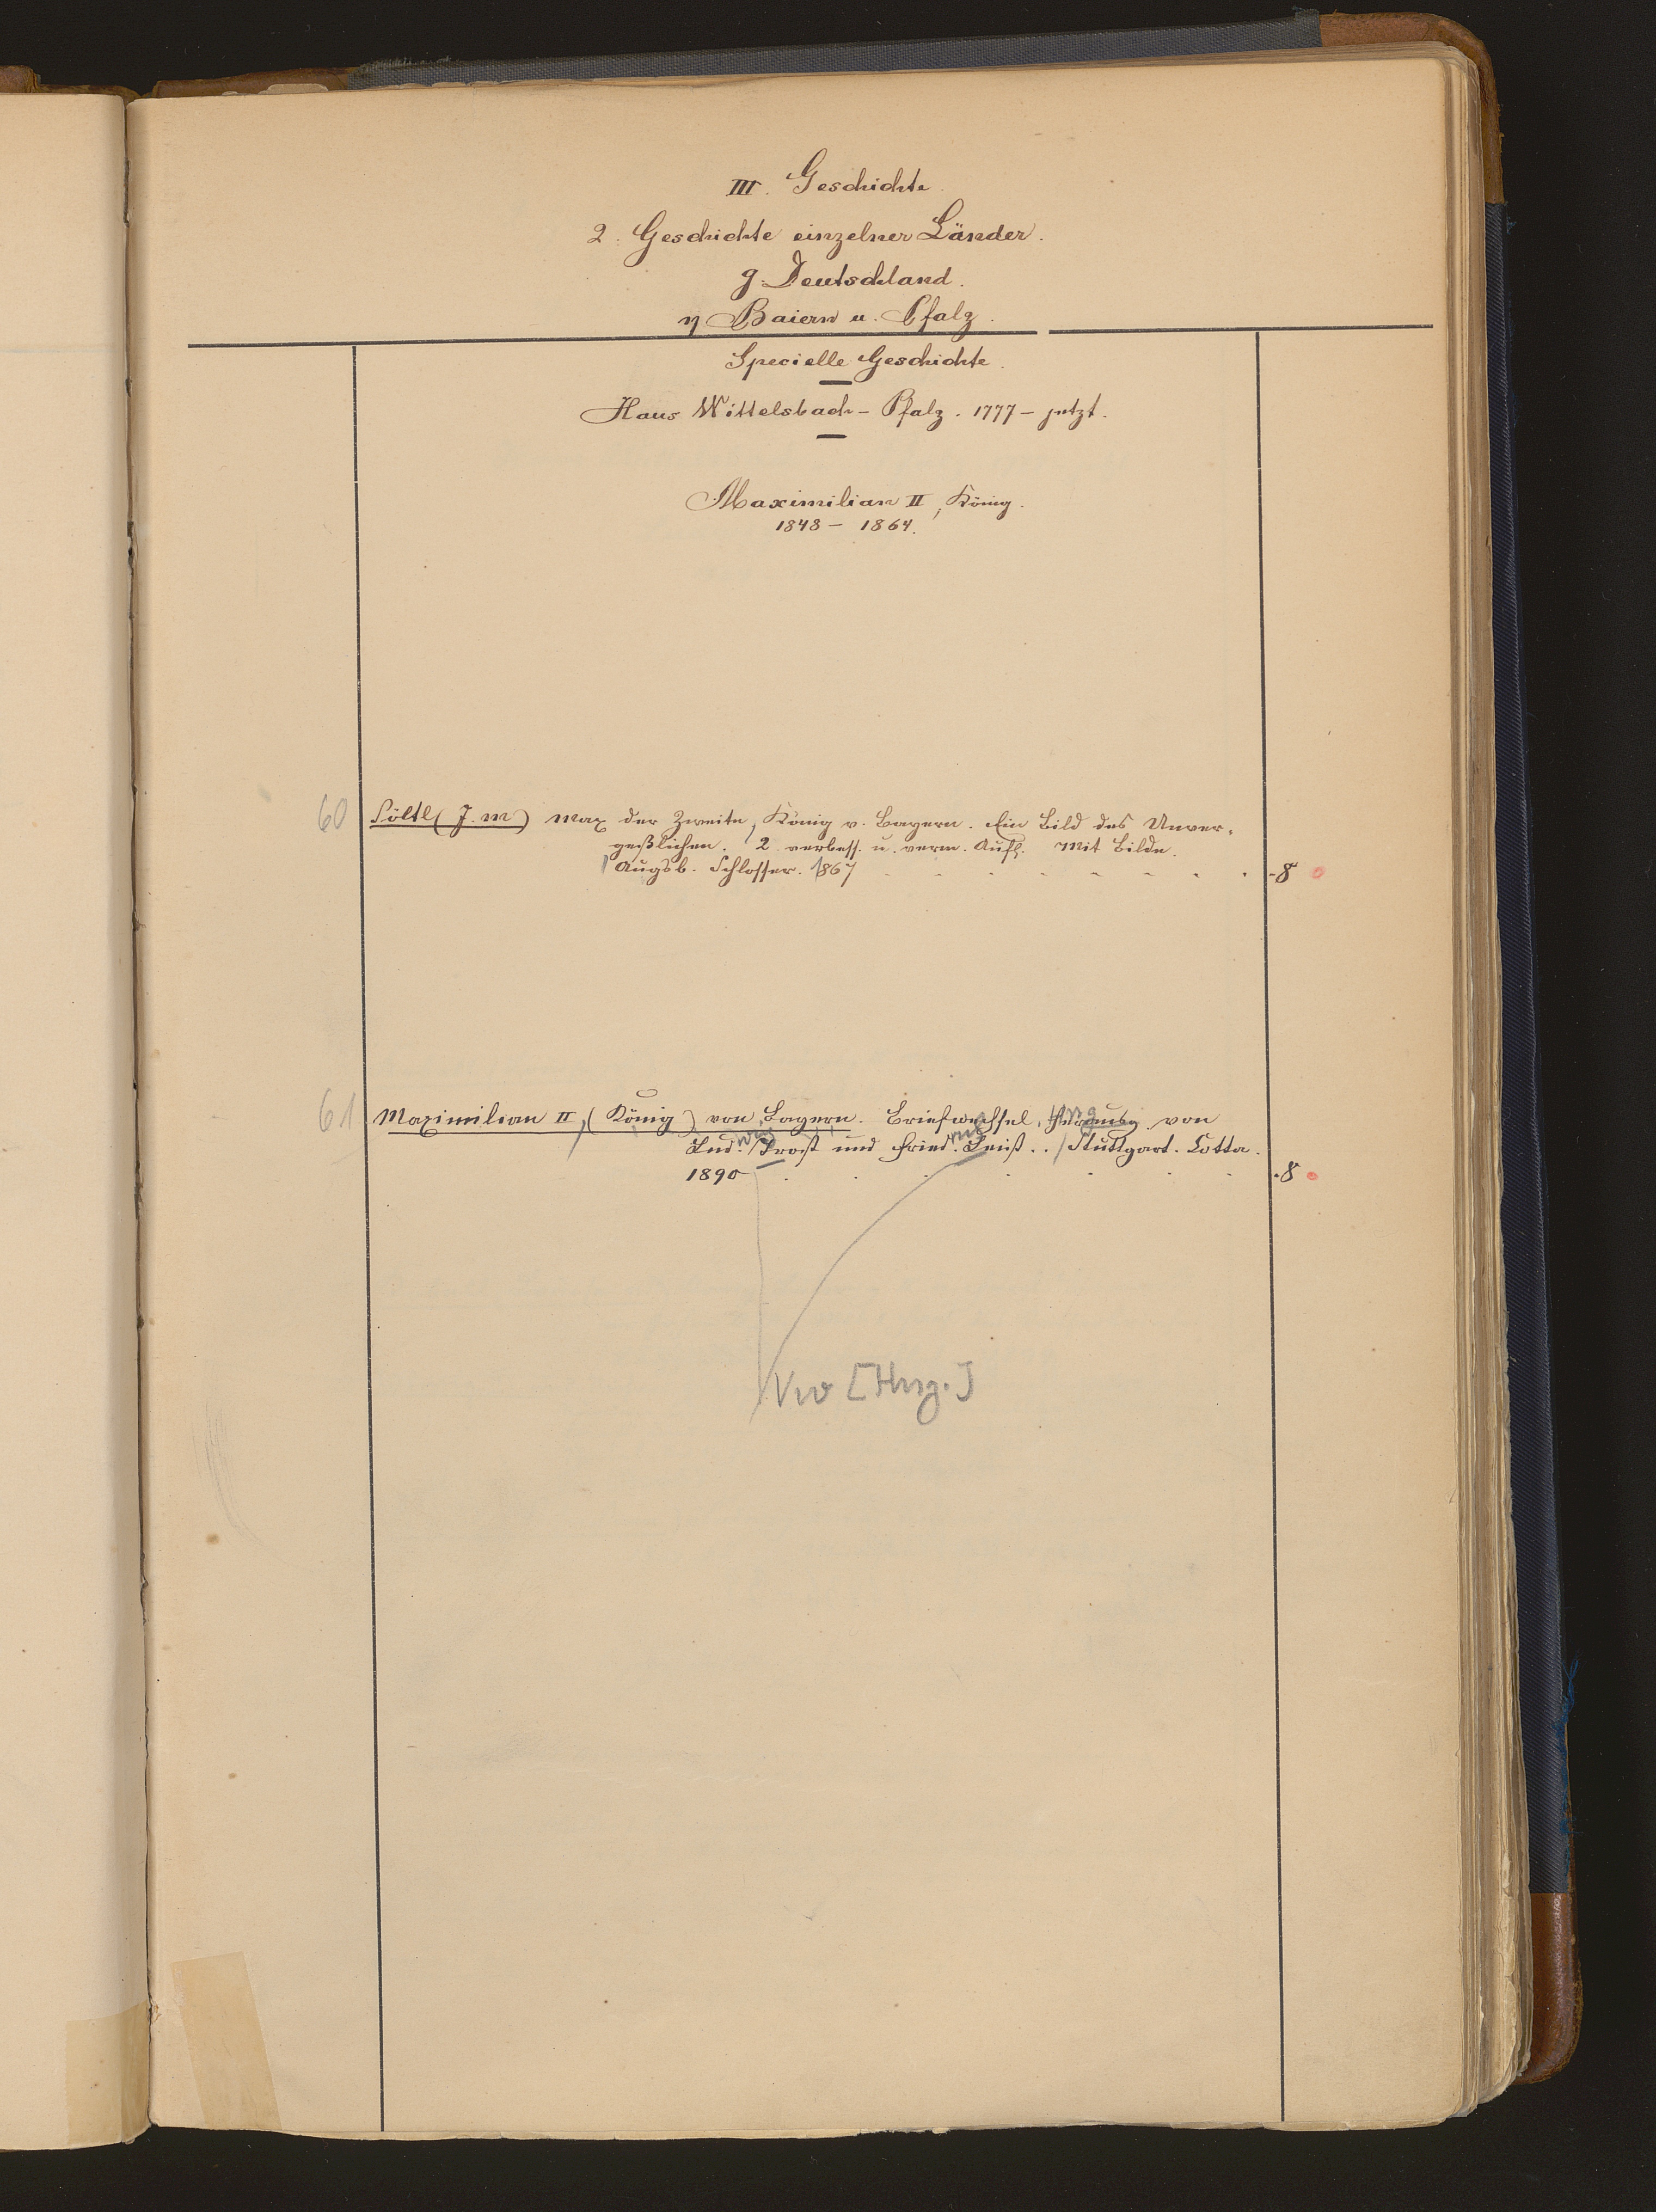 III. Geschichte.
2. Geschichte einzelner Länder.
g. Deutschland.
η Baiern u. Pfalz.
Specielle Geschichte.
Haus Wittelsbach - Pfalz. 1777 - jetzt.
Maximilian II, König.
1848 - 1864.
60 Söltl (J. M) Max der Zweite, König v. Bayern. Ein Bild des Unver-
geßlichen. 2. verbess. u. verm. Aufl. Mit Bilde.
Augsb. Schlosser. 1867 - 8
61 Maximilian II, (König) von Bayern. Briefwechsel. Herausg von
Lud. Trost und Fried. Leist. Stuttgart. Cotta.
1890 . 8
Vw [Hrsg.]